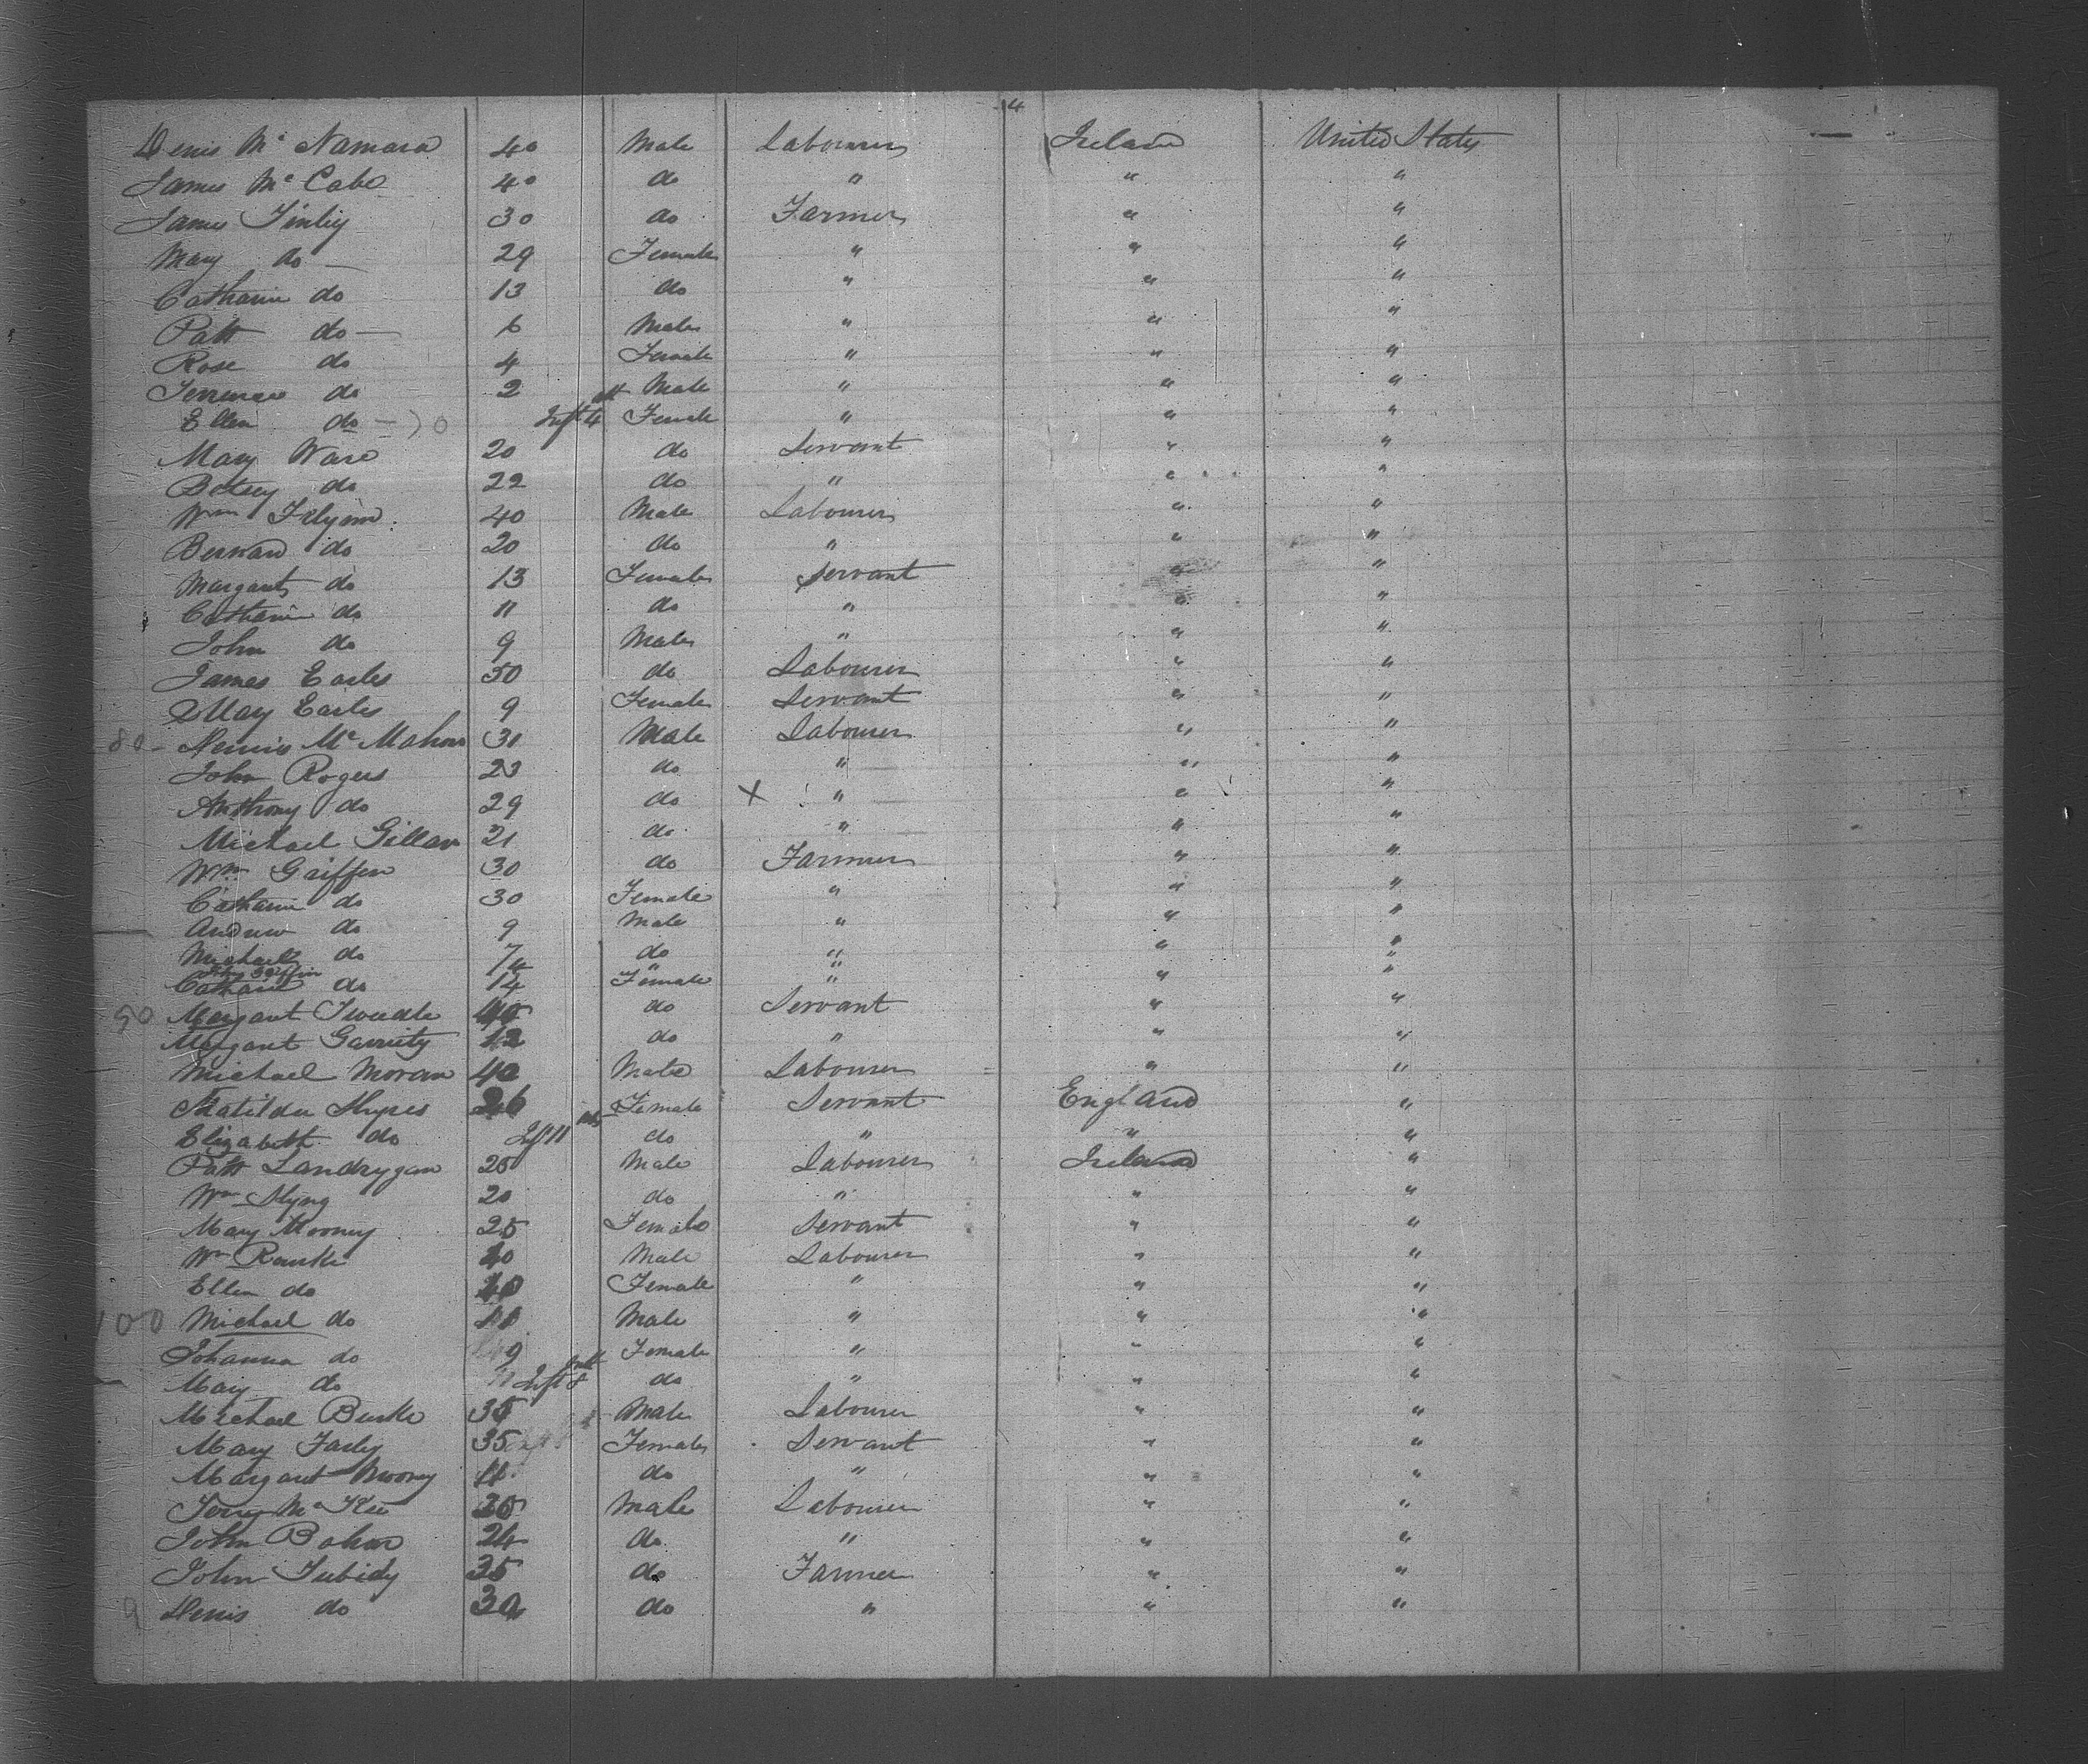 4
Denis Mc Namara 40 Male Labourer Ireland United States
James Mc Cabe 40 do " " "
James Finley 30 do Farmer " "
Mary do 29 Female " " "
Catharine do 13 do " " "
Patt do 6 Male " " "
Rose do 4 Female " " "
Terrence do 2 Male " " "
Ellen do 70 Inft 4 Female " " "
Mary Ware 20 do Servant " "
Betsey do 22 do " " "
Wm Flynn 40 Male Labourer " "
Bernard do 20 do " " "
Margaret do 13 Female Servant " "
Catharine do 11 do " " "
John do 9 Male " " "
James Earles 50 do Labourer " "
Mary Earles 9 Female Servant " "
80 - Dennis Mc Mahon 31 Male Labourer " "
John Rogers 23 do " " "
Anthony do 29 do X " " "
Michael Gillan 21 do " " "
Wm Griffen 30 do Farmer " "
Catharine do 30 Female " " "
Andrew do 9 Male " " "
Michael do 7 do " " "
Griffin 4 " " "
Catharine do 14 Female " " "
90 Margaret Tweedle do Servant " "
Margaret Garrity 12 do " " "
Michael Moran 40 Male Labourer " "
Matilda 26 Female Servant England "
Elizabeth do Inft 11 do " " "
Patt Landrygan 25 Male Labourer Ireland "
Wm 20 do " " "
Mary Mooney 25 Female Servant " "
Wm Rourke 40 Male Labourer " "
Ellen do 40 Female " " "
100 Michael do 11 Male " " "
Johanna do 9 Female " " "
Mary do Inft 8 do " " "
Michael Burke 35 Male Labourer " "
Mary Farley 35 Female Servant " "
Margaret Mooney 11 do " " "
Terry Mc Kee Male Labourer " "
John 24 do " " "
John Tubidy 35 do Farmer " "
9 Denis do 30 do " " "